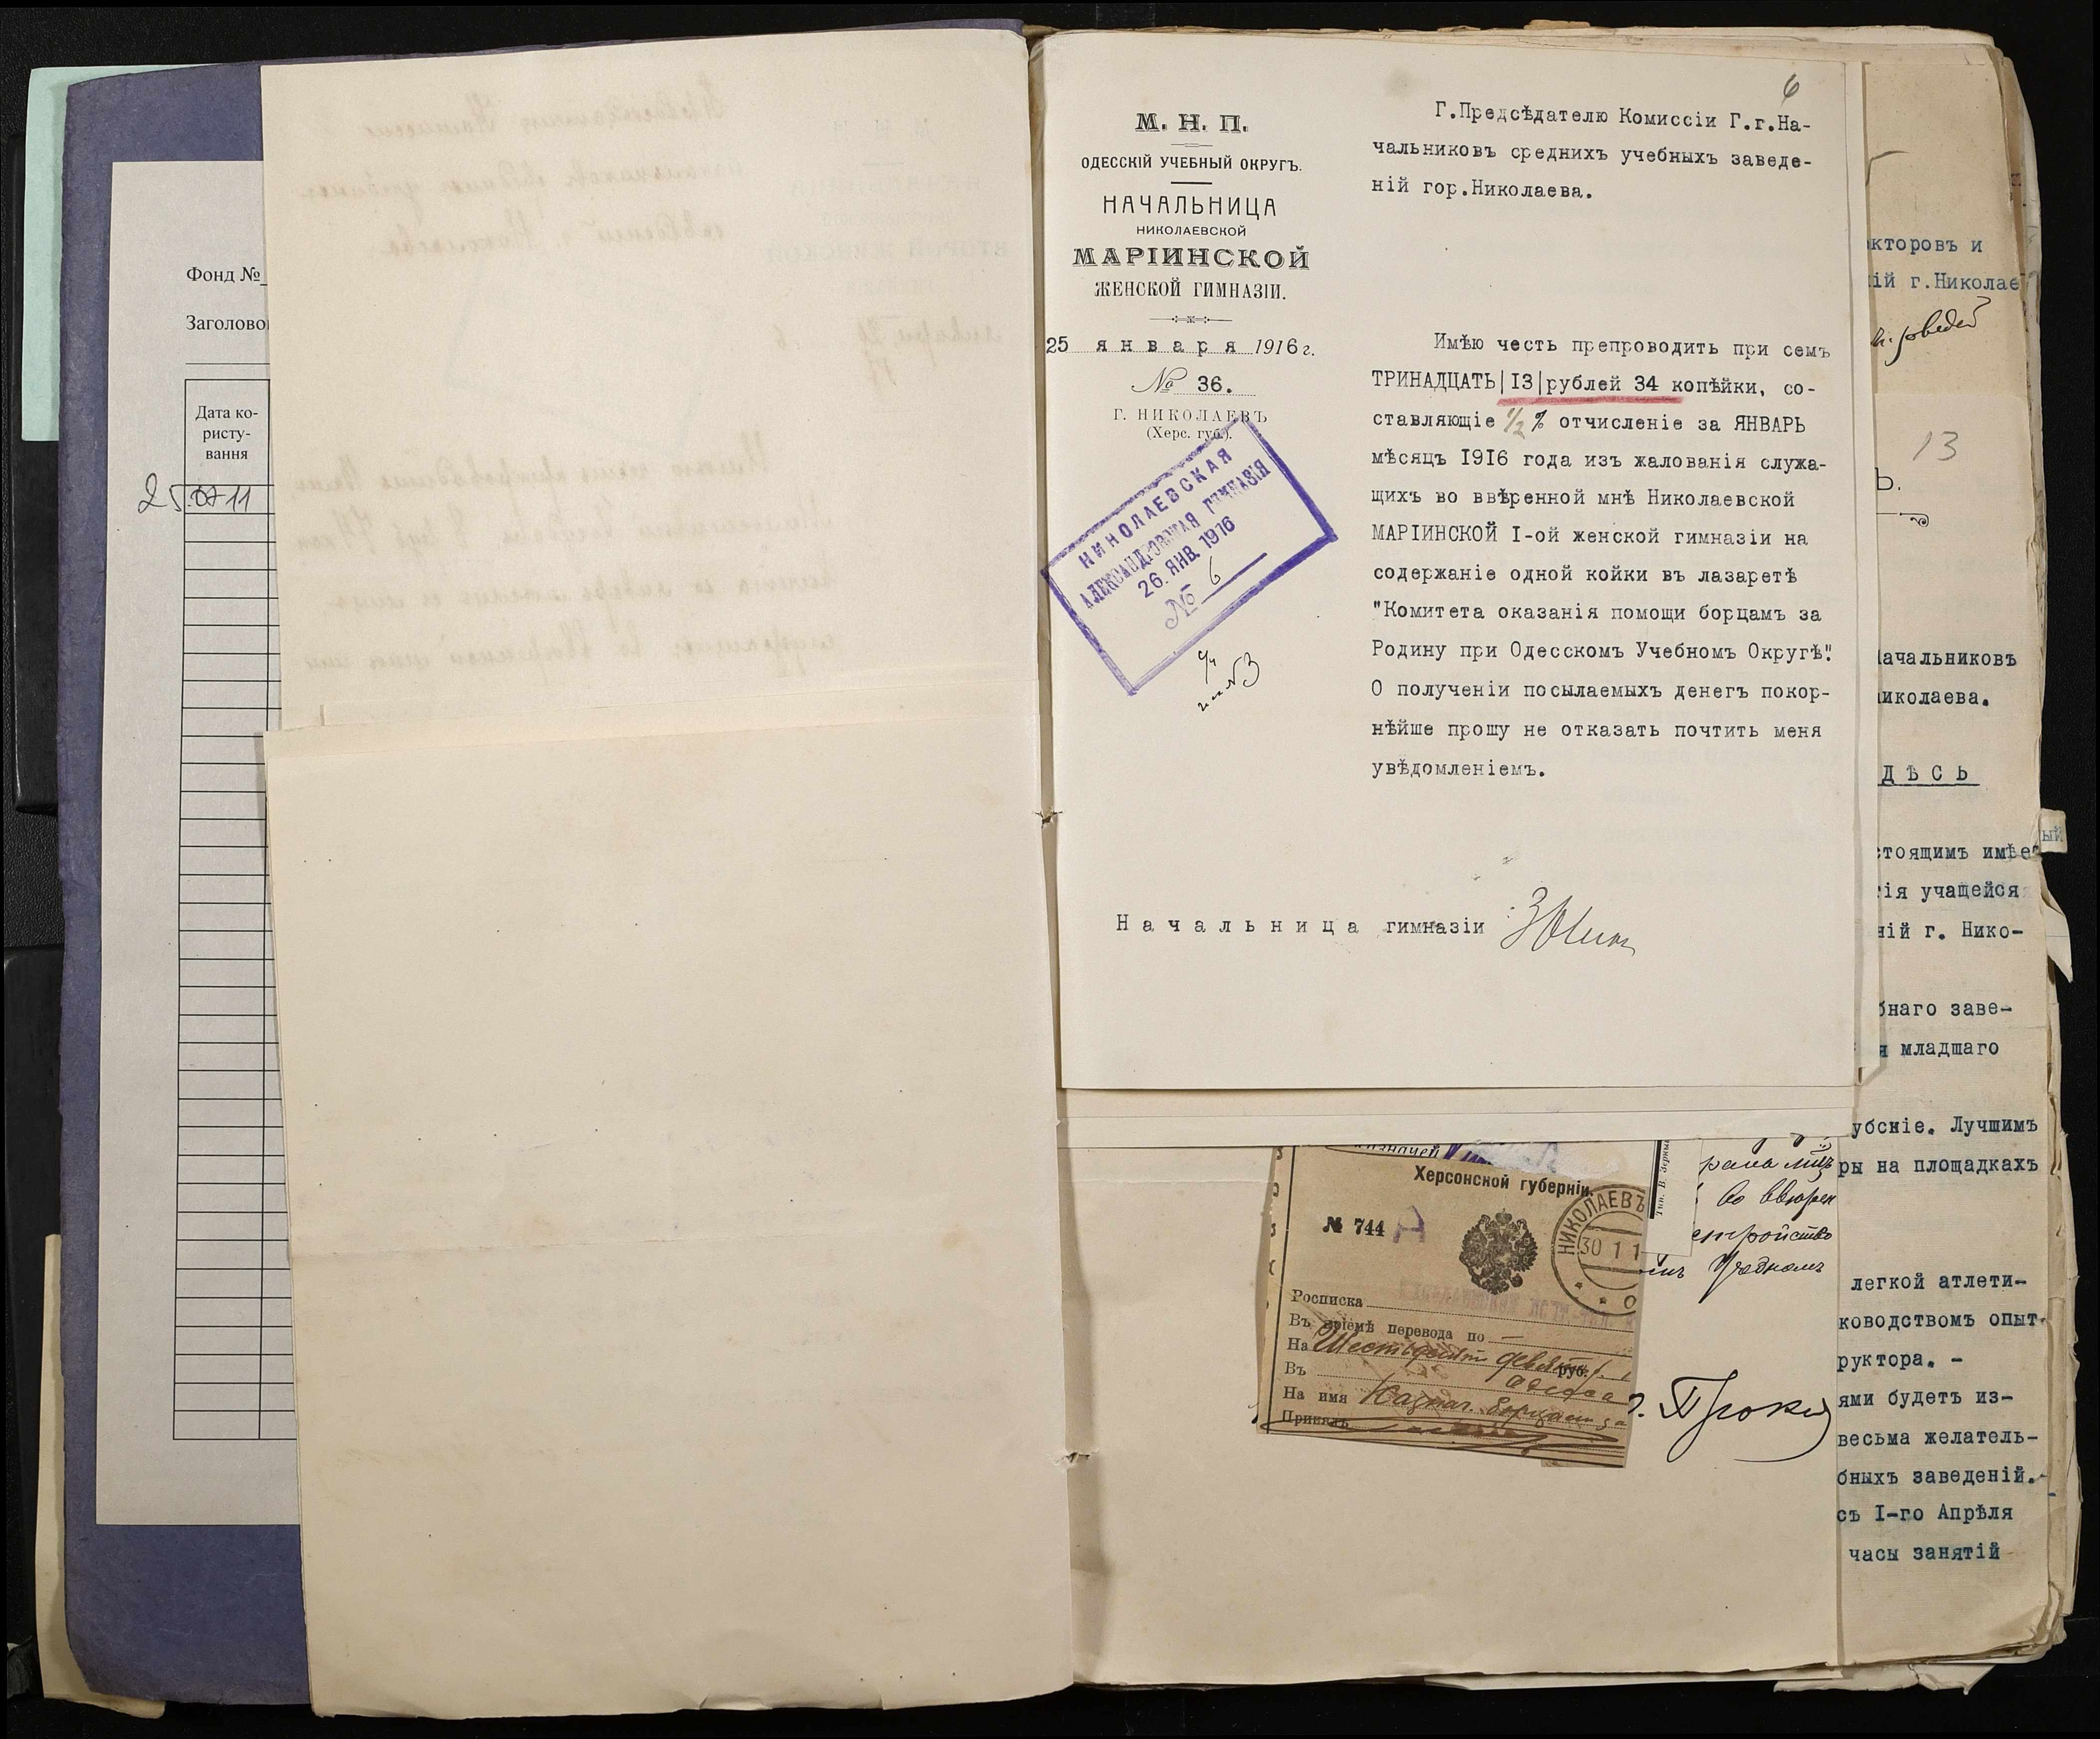 Фонд №
Заголово
Дата ко-
ристу-
вання
25.07 11
6
М. Н. П.
ОДЕССКІЙ УЧЕБНЫЙ ОКРУГЪ.
НАЧАЛЬНИЦА
НИКОЛАЕВСКОЙ
МАРІИНСКОЙ
ЖЕНСКОЙ ГИМНАЗІИ.
25 января 1916 г.
№ 36.
Г. НИКОЛАЕВЪ
(Херс. губ.).
НИКОЛАЕВСКАЯ
АЛЕКСАНДРОВСКАЯ ГИМНАЗІЯ
26. ЯНВ. 1916
№ 6
Г.Предсѣдателю Комиссіи Г.г.На-
чальниковъ среднихъ учебныхъ заведе-
ній гор.Николаева.
Имѣю честь препроводить при семъ
ТРИНАДЦАТЬ|I3|рублей 34 копѣйки, со-
ставляющіе 1/2 % отчисленіе за ЯНВАРЬ
мѣсяцъ I9I6 года изъ жалованія служа-
щихъ во ввѣренной мнѣ Николаевской
МАРІИНСКОЙ I-ой женской гимназіи на
содержаніе одной койки въ лазаретѣ
"Комитета оказанія помощи борцамъ за
Родину при Одесскомъ Учебномъ Округѣ".
О полученіи посылаемыхъ денегъ покор-
нѣйше прошу не отказать почтить меня
увѣдомленіемъ.
Начальница гимназіи
казначей
Херсонской губерніи.
№ 744
НИКОЛАЕВЪ
30 1 1
Росписка
Въ пріемѣ перевода по
На Шестьдесят девять руб.
Въ Одесса
На имя Казнач. Борцамъ за
Принялъ
Тип. В
во ввѣрен
кторовъ и
ій г.Николае
13
Начальниковъ
иколаева.
ДѢСЬ
стоящимъ имѣе
ія учащейся
ній г. Нико-
бнаго заве-
я младшаго
убскіе. Лучшимъ
ры на площадкахъ
легкой атлети-
ководствомъ опыт-
руктора. -
ями будетъ из-
весьма желатель-
бныхъ заведеній.-
съ I-го Апрѣля
часы занятій
ый